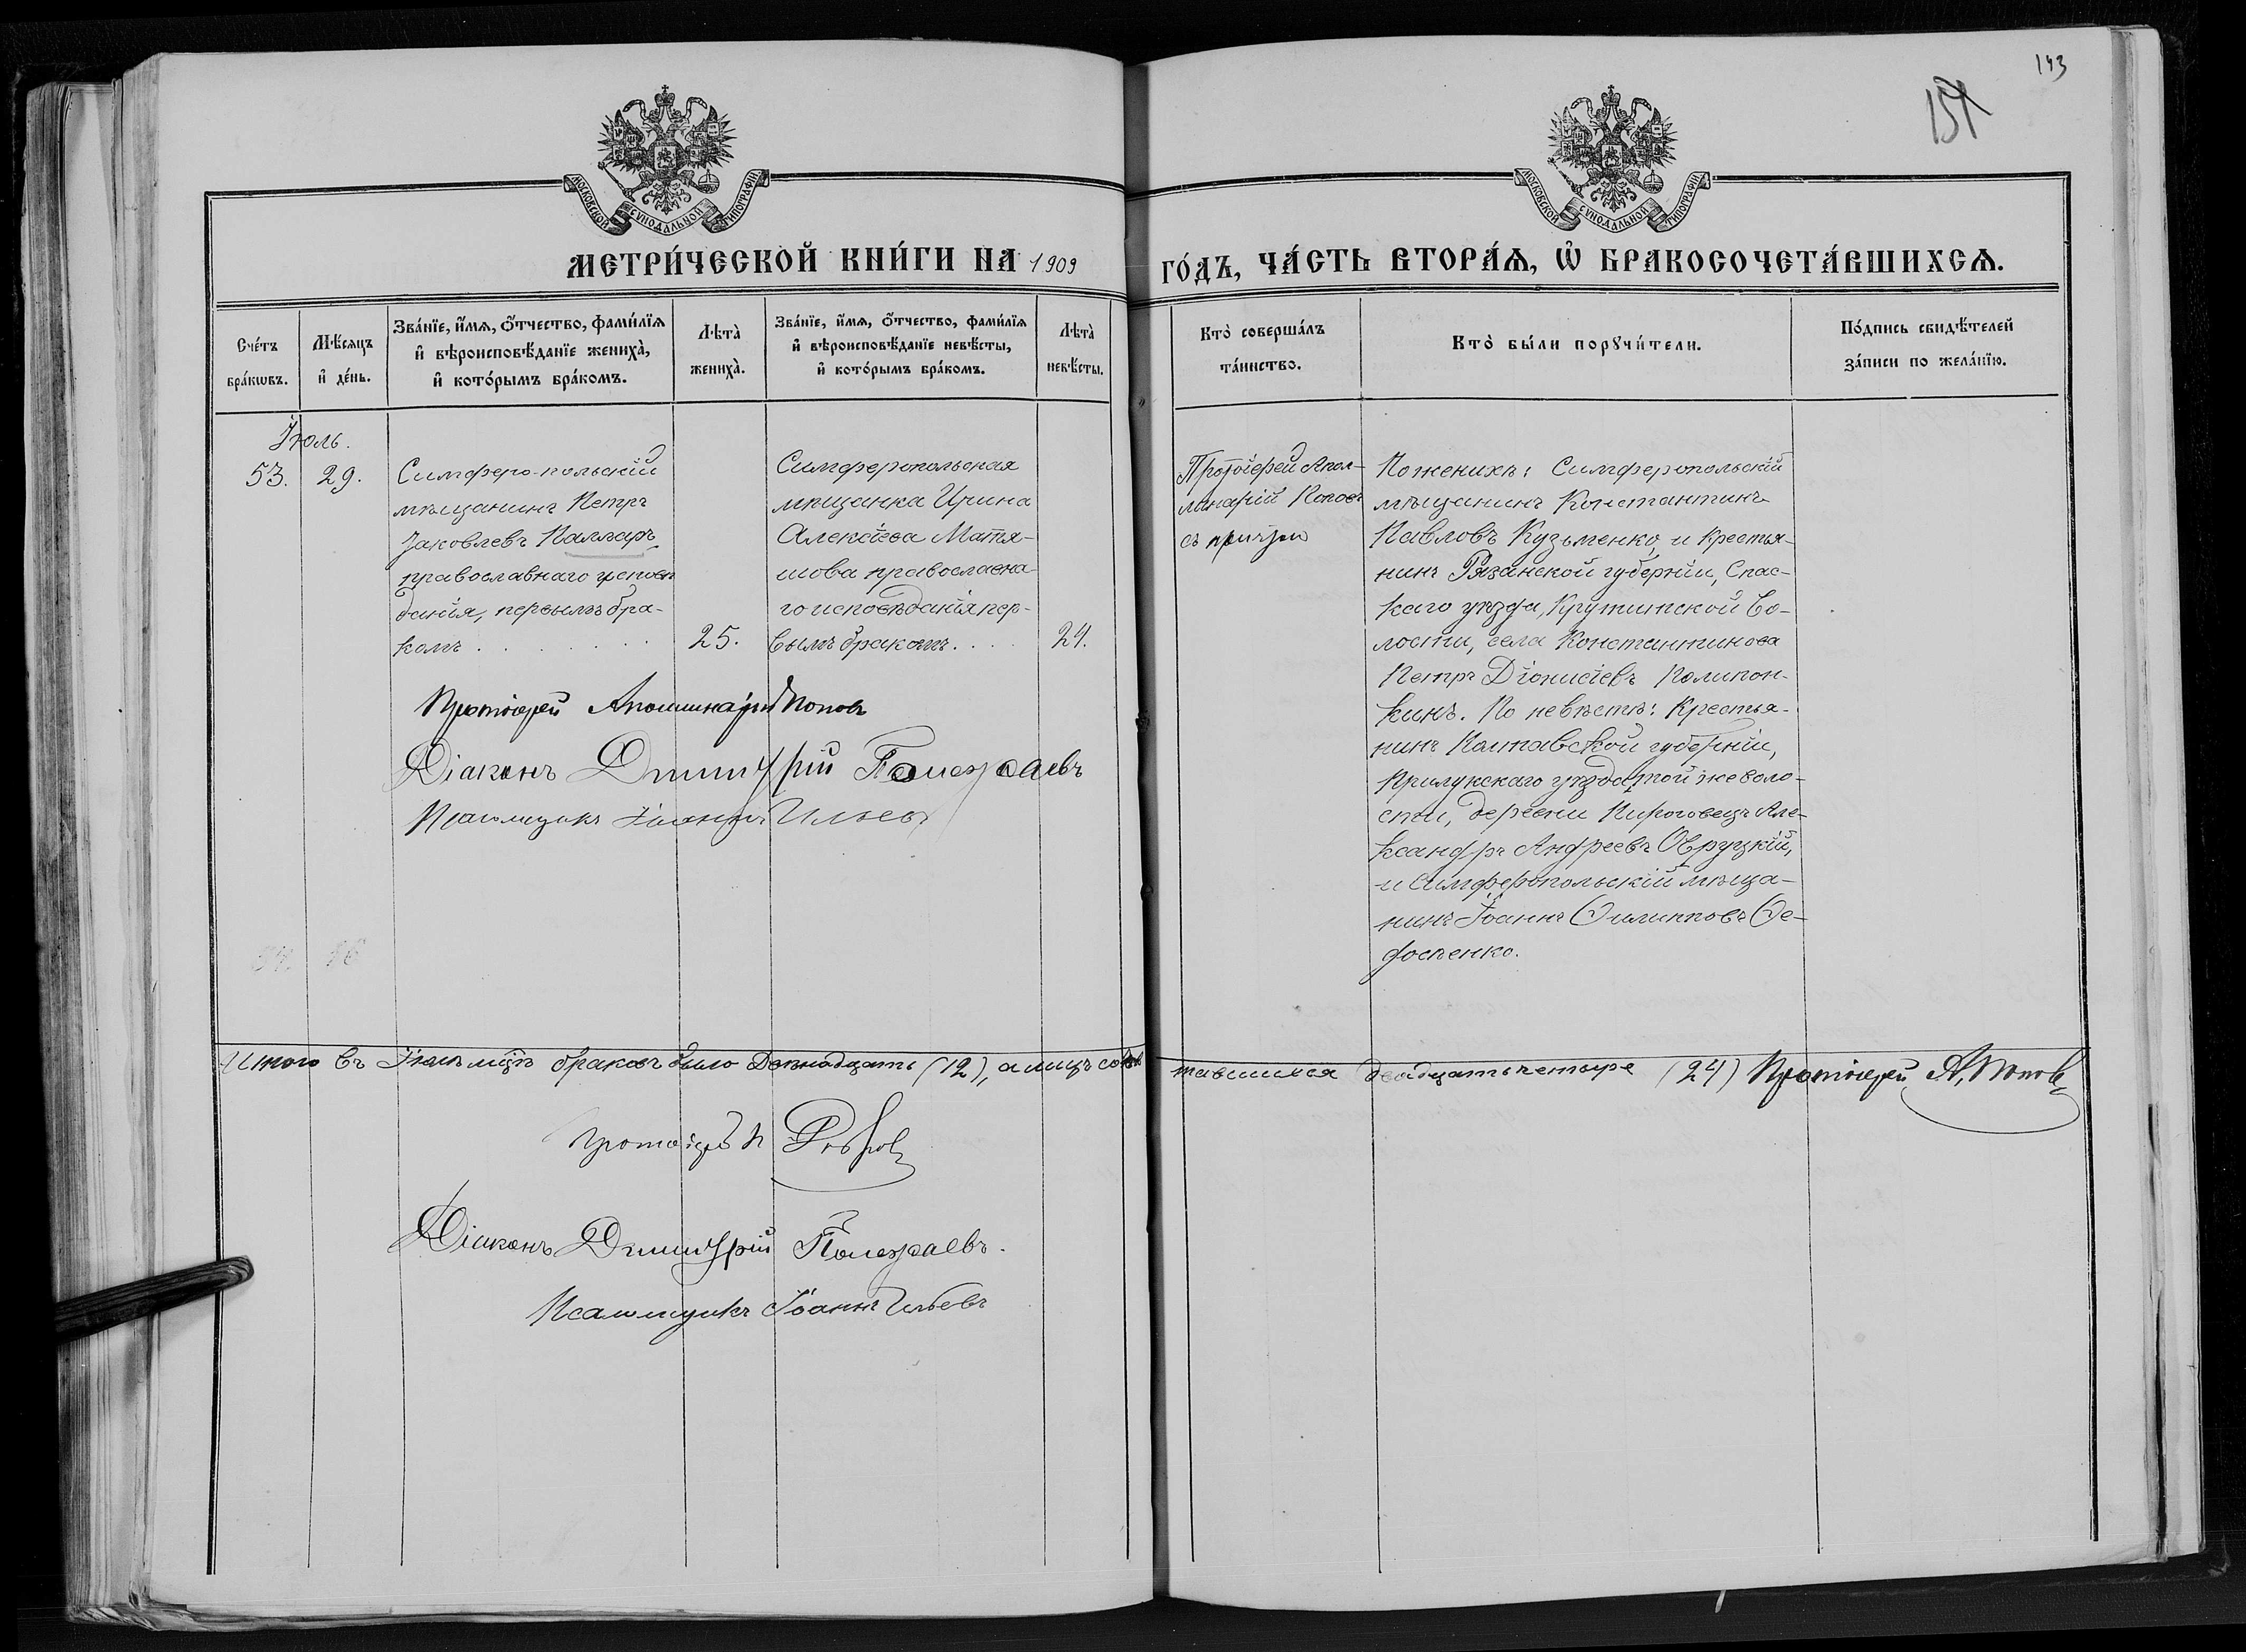 143
МОСКОВСКОЙ СУНОДАЛЬНОЙ ТИПОГРАФІИ
МОСКОВСКОЙ СУНОДАЛЬНОЙ ТИПОГРАФІИ
МЕТРИ́ЧЕСКОЙ КНИ́ГИ НА 1909
ГО́ДЪ, ЧА́СТЬ ВТОРА́Ѧ, Ѽ БРАКОСОЧЕТА́ВШИХСѦ.
Сче́тъ
бра́кѡвъ.
Мѣ́сѧцъ
и҆ де́нь.
Зва́нїе, и҆́мѧ, ѻ҆́тчество, фами́лїѧ
и҆ вѣроисповѣ́данїе жениха̀,
и҆ кото́рымъ бра́комъ.
Лѣта̀
жениха̀.
Зва́нїе, и҆́мѧ, ѻ҆́тчество, фами́лїѧ
и҆ вѣроисповѣ́данїе невѣ́сты,
и҆ кото́рымъ бра́комъ.
Лѣта̀
невѣ́сты.
Кто̀ соверша́лъ
та́инство.
Кто̀ бы́ли порꙋчи́тели.
По́дпись свидѣ́телей
за́писи по жела́нїю.
Іюль.
53. 29.
Симферо-польскій
мѣщанинъ Петръ
Іаковлевъ Палларъ
православнаго исповѣ
данія, первымъ бра-
комъ . . . . . . 25.
Симферопольская
мѣщанка Ирина
Алексіева Матя-
шова православна-
го исповѣданія пер-
вымъ бракомъ. . . . 24.
Протоіерей Апол-
линарій Поповъ
съ причтом
По женихѣ: Симферопольскій
мѣщанинъ Константинъ
Павловъ Кузьменко, и крестья-
нинъ Рязанской губерніи, Спас-
каго уѣзда, Крутитской во-
лости, села Константинова
Петръ Діонисіевъ Полипон-
кинъ. По невѣстѣ: Крестья-
нинъ Полтавской губерніи,
Прилукскаго уѣзда, той же воло-
сти, деревни Пироговецъ Але-
ксандръ Андреевъ Овруцкій,
и Симферопольскій мѣща-
нинъ Іоаннъ Филипповъ Фе-
досѣенко.
Протоіерей Аполлинарій Поповъ
Діаконъ Димитрій Полежаевъ
Псаломщикъ Іоаннъ Ильевъ
Итого въ Іюлѣ мѣсцѣ браковъ было Двѣнадцать (12), а лицъ сочѣ
тавшихся двадцать четыре (24) Протоіерей А. Поповъ
Діаконъ Димитрій Полежаевъ.
Псаломщикъ Іоаннъ Ильевъ